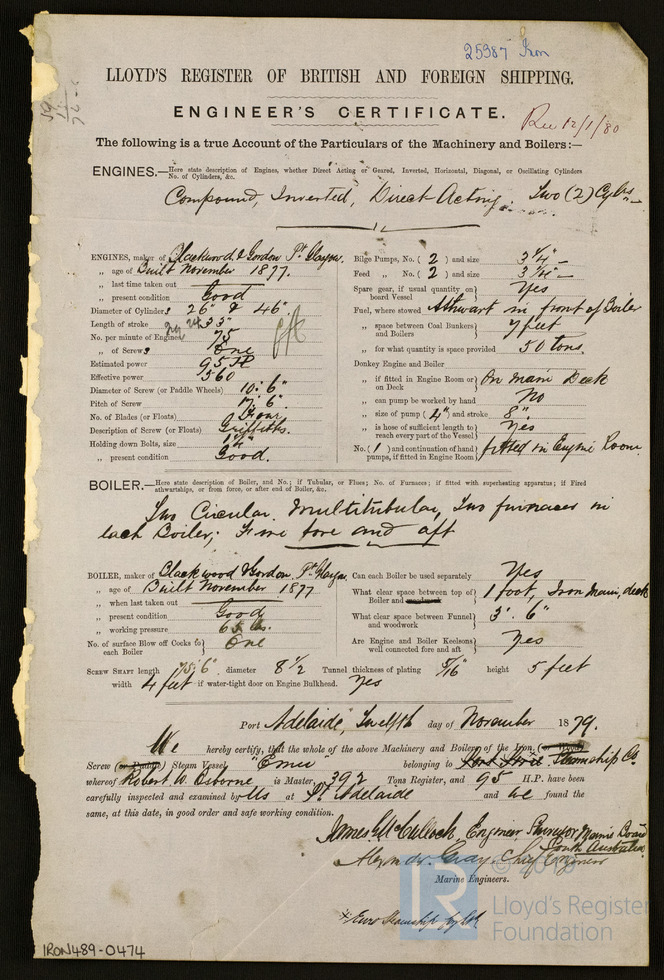 25387 Iron
LLOYD'S REGISTER OF BRITISH AND FOREIGN SHIPPING.
ENGINEER'S CERTIFICATE.
Rec 12/1/80
The following is a true Account of the Particulars of the Machinery and Boilers:—
ENGINES.—Here state description of Engines, whether Direct Acting or Geared, Inverted, Horizontal, Diagonal, or Oscillating Cylinders
No. of Cylinders, &c.
Compound, Inverted, Direct Acting. Two (2) Cylrs
ENGINES, maker of Blackwood & Gordon Pt Glasgow.
„ age of Built November 1877.
„ last time taken out
„ present condition Good
Diameter of Cylinders 26" & 46".
Length of stroke 33"
No. per minute of Engines 75
„ of Screws One
Estimated power 95 HP
Effective power 360
Diameter of Screw (or Paddle Wheels) 10' 6"
Pitch of Screw 17' 6"
No. of Blades (or Floats) Four
Description of Screw (or Floats) Griffiths.
Holding down Bolts, size
„ present condition Good.
Bilge Pumps, No. ( 2 ) and size 3¼"
Feed „ No. ( 2 ) and size 3¼"
Spare gear, if usual quantity on board Vessel Yes
Fuel, where stowed Athwart in front of Boiler
„ space between Coal Bunkers and Boilers 7 feet
„ for what quantity is space provided 50 tons.
Donkey Engine and Boiler
„ if fitted in Engine Room or on Deck On Main Deck
„ can pump be worked by hand No
„ size of pump ( 2" ) and stroke 8"
„ is hose of sufficient length to reach every part of the Vessel Yes
No. ( 1 ) and continuation of hand pumps, if fitted in Engine Room fitted in Engine Room
BOILER.—Here state description of Boiler, and No.; if Tubular, or Flues; No. of Furnaces; if fitted with superheating apparatus; if Fired
athwartships, or from force, or after end of Boiler, &c.
Two Circular Multitubular, Two furnaces in
each Boiler; Fire fore and aft
BOILER, maker of Blackwood & Gordon, Pt Glasgow
„ age of Built November 1877
„ when last taken out
„ present condition Good
„ working pressure 65 lbs.
No. of surface Blow off Cocks to each Boiler One
Can each Boiler be used separately Yes
What clear space between top of Boiler and woodwork 1 foot, Iron Main deck
What clear space between Funnel and woodwork 3'. 6"
Are Engine and Boiler Keelsons well connected fore and aft Yes
SCREW SHAFT length 75' 6" diameter 8½ Tunnel thickness of plating 5/16" height 5 feet
width 4 feet if water-tight door on Engine Bulkhead. Yes
Port Adelaide, Twelfth day of November 1879.
We hereby certify, that the whole of the above Machinery and Boilers of the Iron, (or Wood)
Screw (or Paddle) Steam Vessel "Emu" belonging to Steamship Co.
whereof Robert W. Osborne is Master, 392 Tons Register, and 95 H.P. have been
carefully inspected and examined by Us at Pt Adelaide and We found the
same, at this date, in good order and safe working condition.
James McCulloch Engineer Surveyor Marine Board
South Australia
Alexander Gray, Chief Engineer
Marine Engineers.
LR
Lloyd's Register
Foundation
IRON489-0474